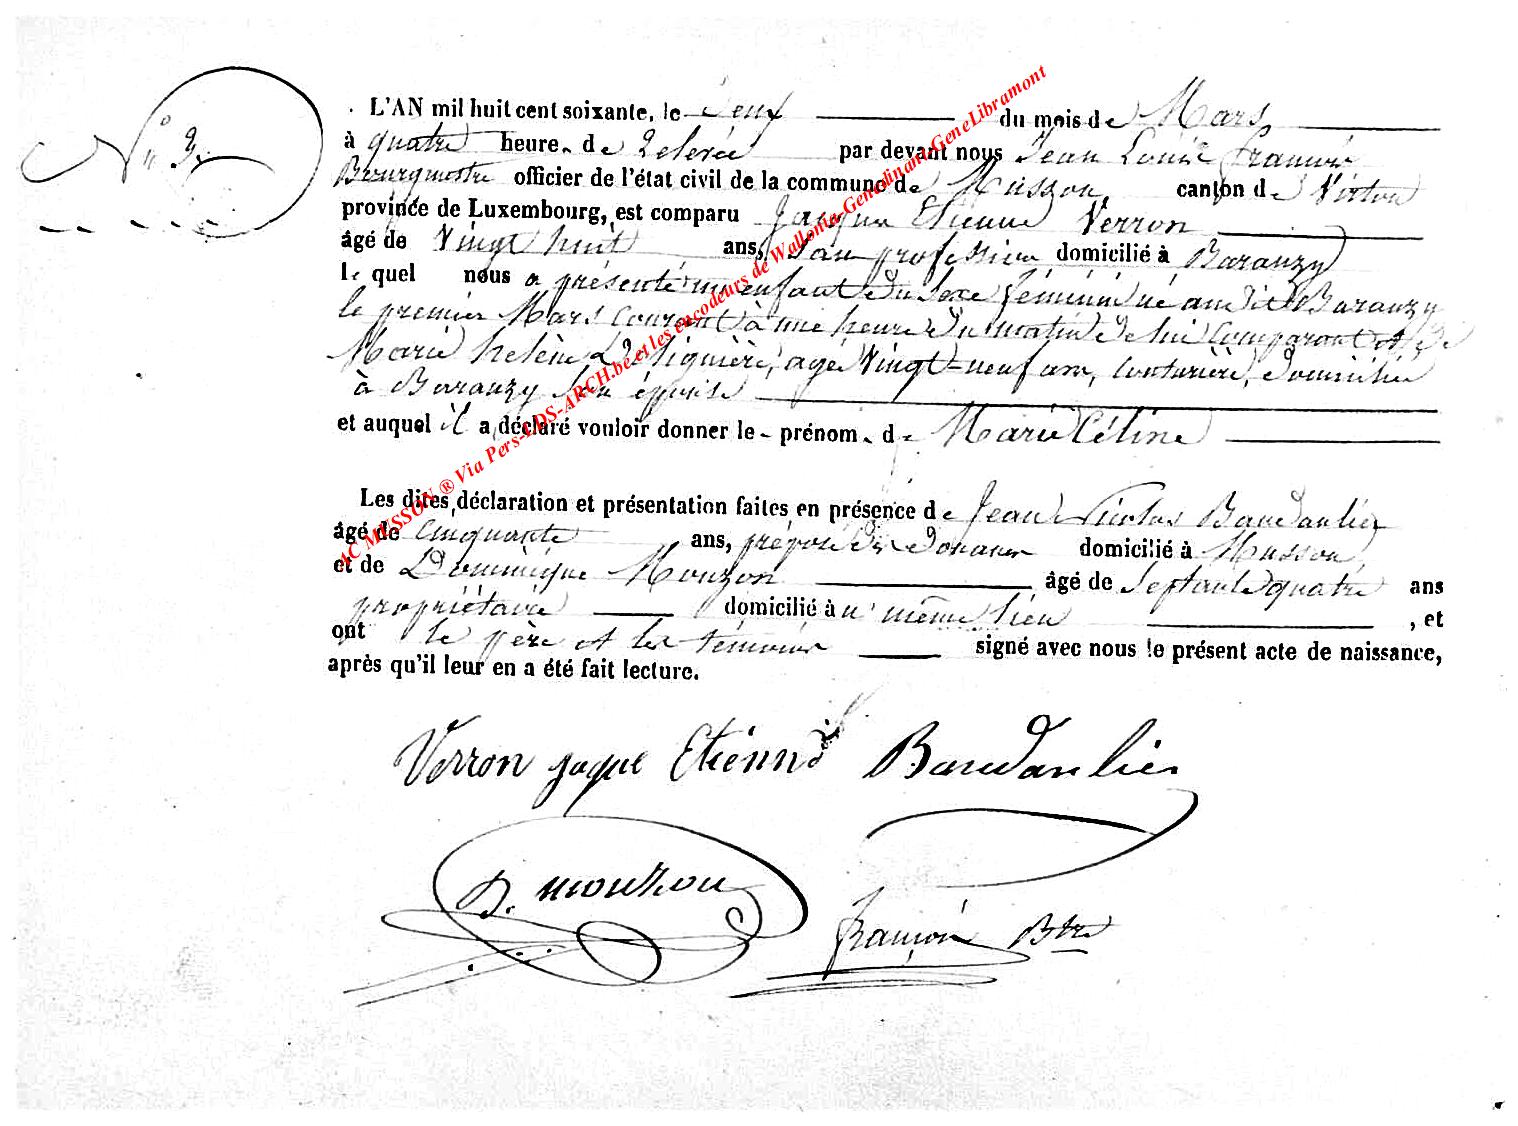 N° 3.
L'AN mil huit cent soixante, le deux du mois de Mars
à quatre heure de relevée par devant nous Jean Louis François
Bourgmestre officier de l'état civil de la commune de Musson canton de Virton
province de Luxembourg, est comparu Jacques Etienne Verron
âgé de vingt huit ans, sans profession domicilié à Baranzy
le quel nous a présenté un enfant du sexe féminin né au dit Baranzy
le premier Mars courant à une heure du matin de lui comparant et de
Marie helène agé vingt-neuf ans, couturière, domicilié
à Baranzy son épouse
et auquel il a déclaré vouloir donner le prénom de Marie Céline
Les dites déclaration et présentation faites en présence de Jean Nicolas Baudanlier
âgé de cinquante ans, préposé des douanes domicilié à Musson,
et de Dominique Mouzon âgé de septante quatre ans
propriétaire domicilié à même lieu , et
ont le père et les témoins signé avec nous le présent acte de naissance,
après qu'il leur en a été fait lecture.
Verron jaque Etienne Baudanlier
D. mouzon
françois Btre
AC MUSSON ® Via Pers-LDS-ARCH.be et les encodeurs de Wallonia-Genedinant-GeneLibramont